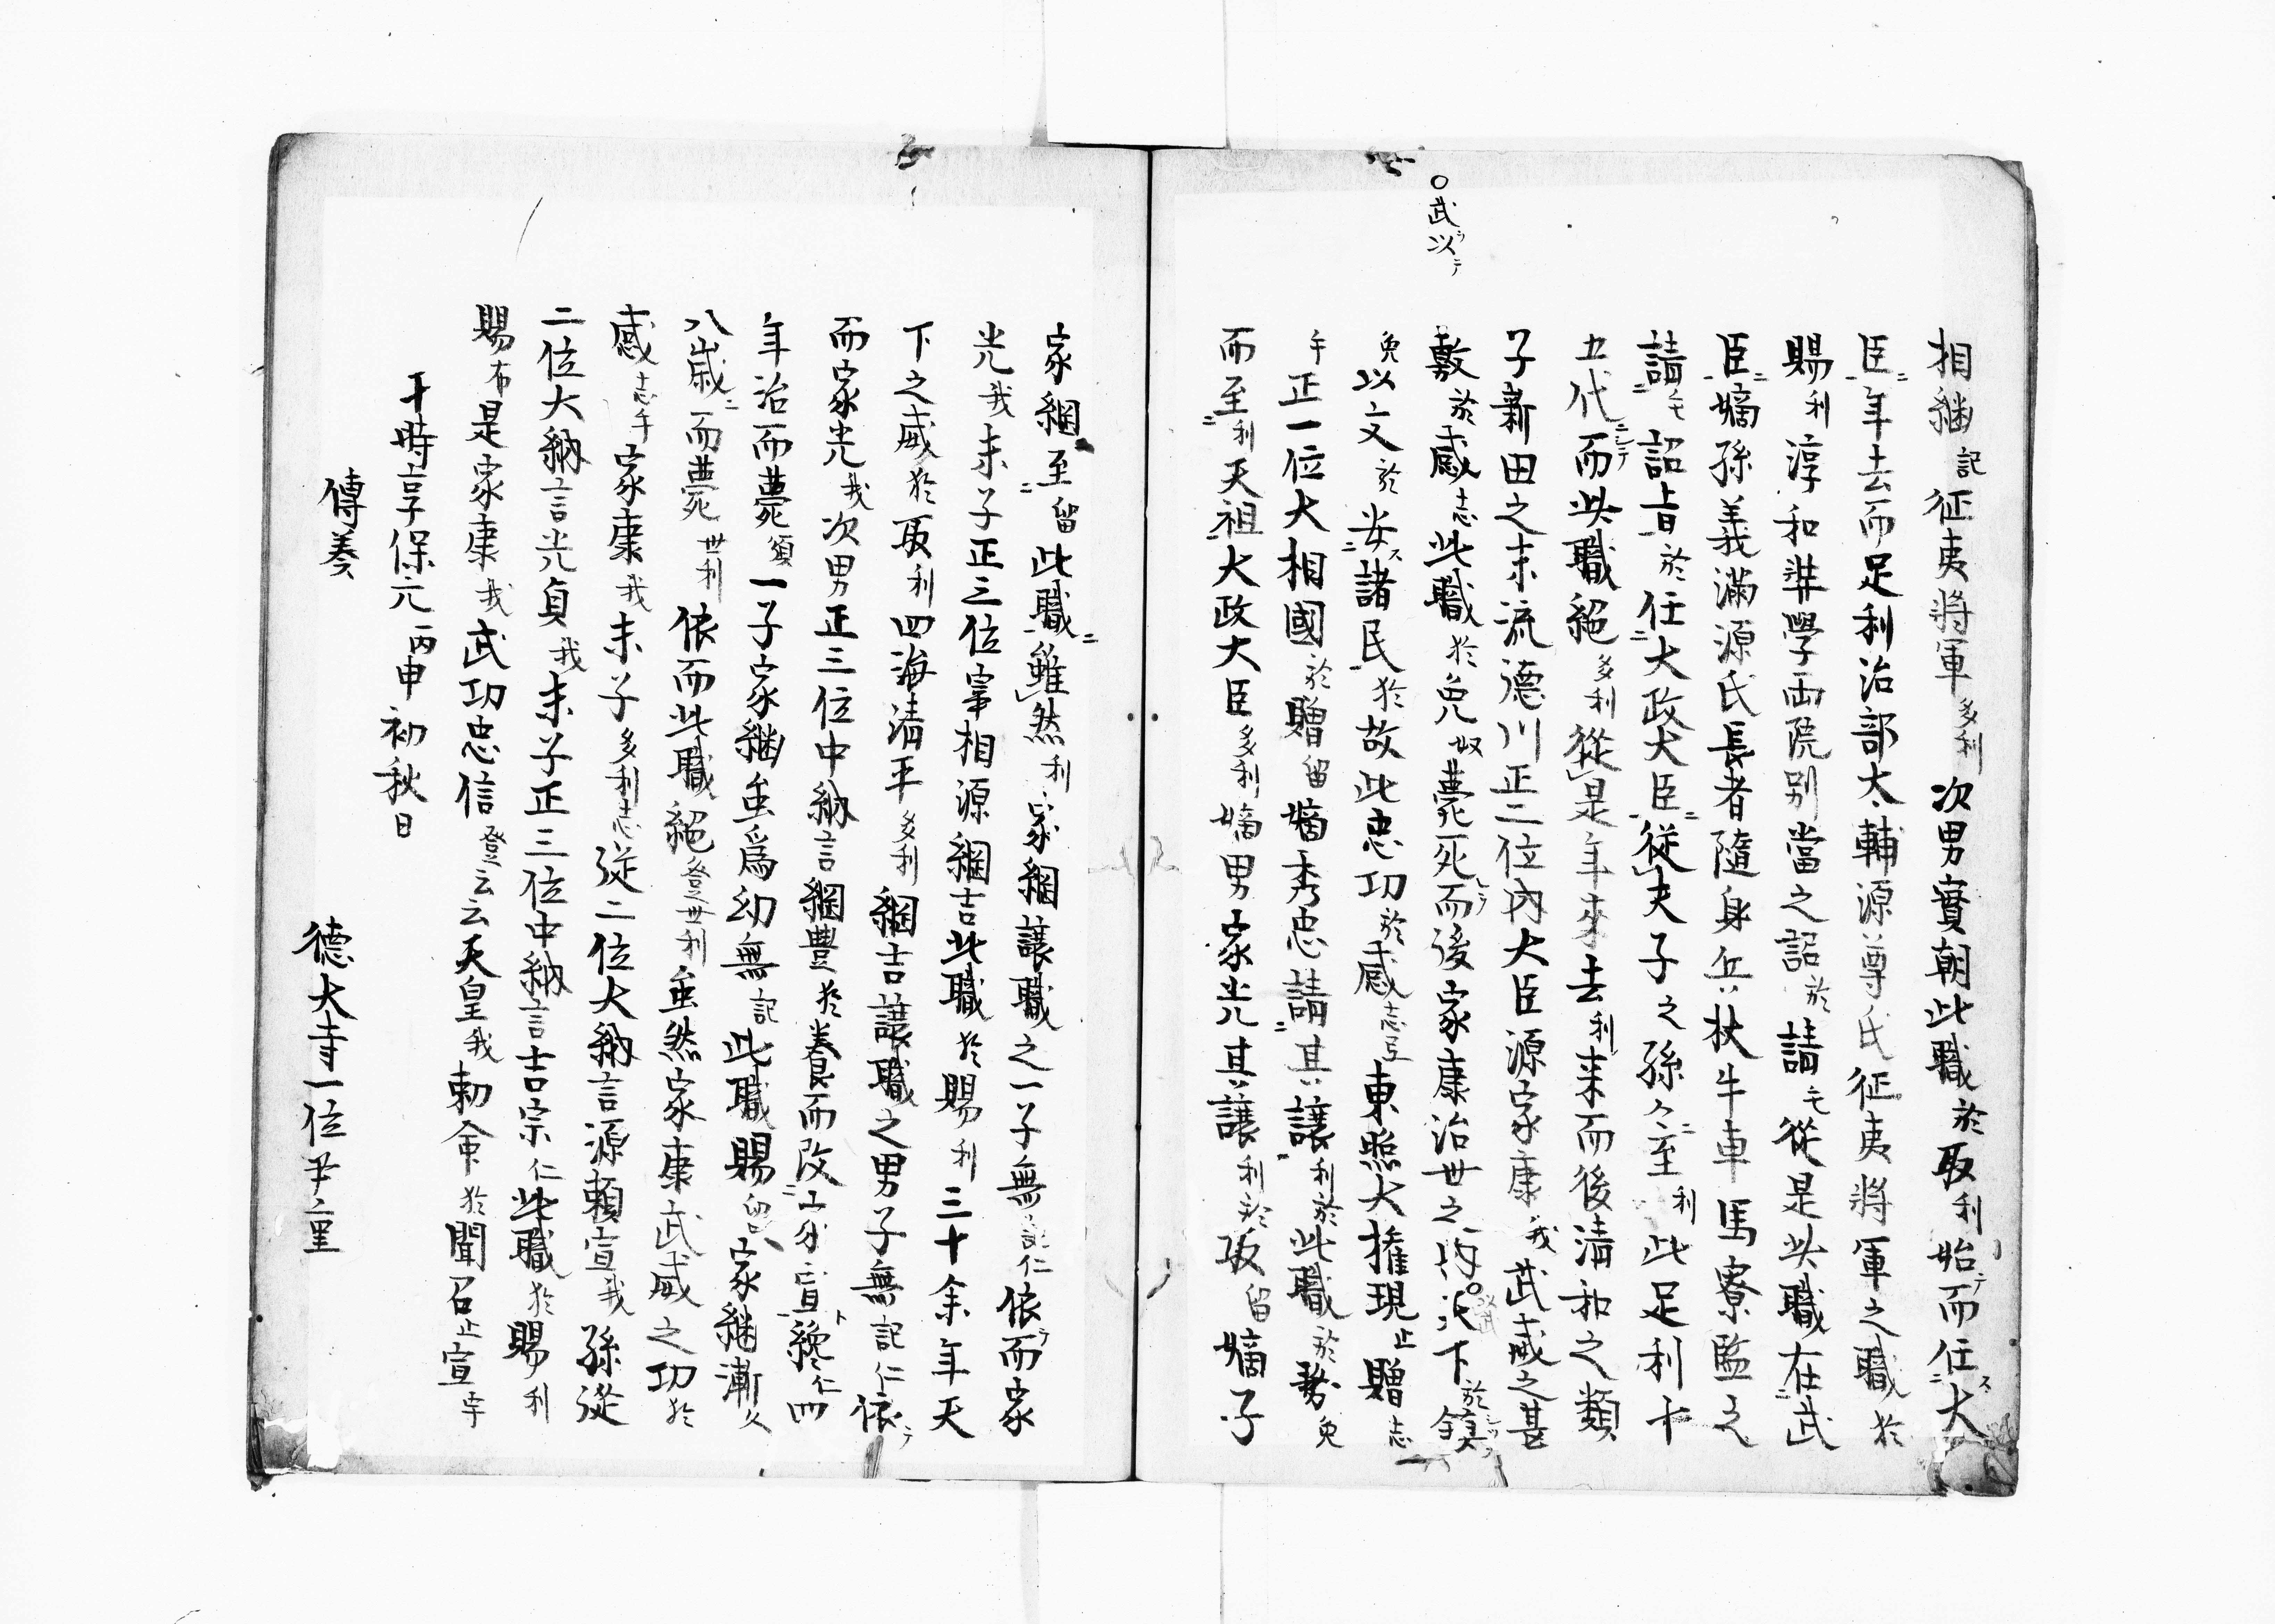 相継記征夷将軍多利次男實朝此職於取利始テ而任ス二大
臣二年去而足利治部太輔源尊氏征夷将軍之職於
賜利淳和弉學両院別當之詔於請毛従是此職在二武
臣二嫡孫義満源氏長者随身兵杖牛車馬寮監之
請二毛詔旨於任二大政大臣二従夫子之孫々二至利此足利十
五代ニシテ而此職絶多利従是年來去利来而後清和之類
子新田之末流徳川正二位内大臣源家康我武威之甚
敷於感志此職於免奴薨死シテ而後家康治世之内天下於鎮シツメ
○武ヲ以テ
免以文於安ス二諸民於故此忠功於感志弖東照大権現止贈志
午正一位大相國於贈留嫡秀忠請二其譲利於此職於勢免
而至二利天祖大政大臣多利嫡男家光其譲利於取留嫡子
家綱至二留此職二雖然利家綱譲職之一子無記仁依テ而家
光我末子正三位宰相源綱吉此職於賜利三十余年天
下之威於取利四海清平多利綱吉譲職之男子無記仁依テ
而家光我次男正三位中納言綱豊於養而改二家宣ト纔仁四
年治而薨須一子家継虽爲幼無記此職賜留家継漸久
八歳二而薨世利依而此職絶登世利虽然家康武威之功於
感志午家康我末子多利志従二位大納言源頼宣我孫従
二位大納言光貞我末子正三位中納言吉宗仁此職於賜利
賜布是家康我武功忠信登云云天皇我勅命於聞召止宣
于時享保元丙申初秋日
傳奏
徳大寺一位